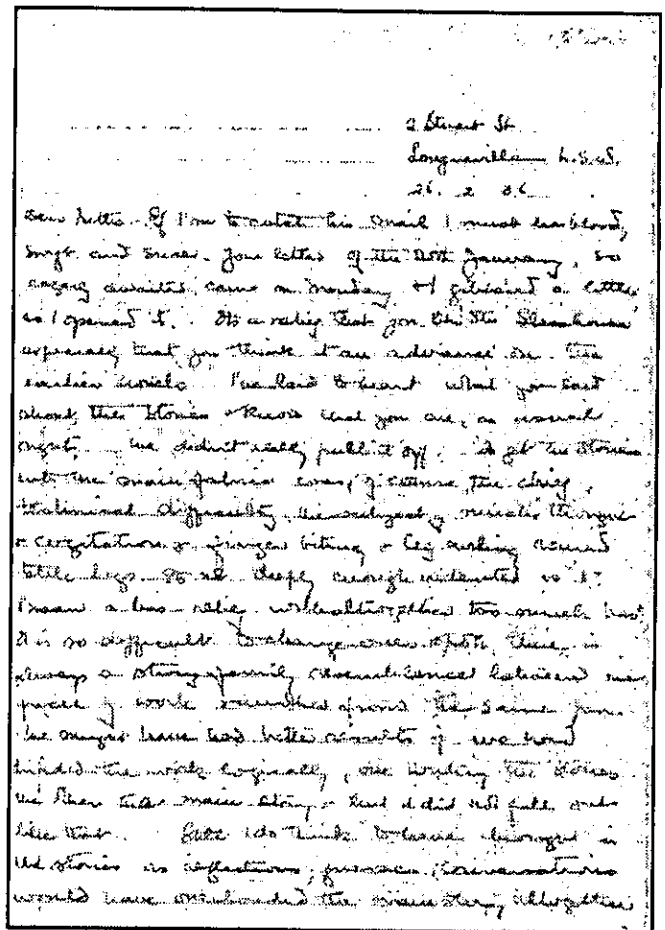 2 Stuart St
Longueville N.S.W.
26. 2 36
Dear Nettie. If I'm to catch this mail I must
and Your letter of the 20th January, so
awaited, came on Monday & I a little
as I opened it. It's a relief that you like the Glasshouse
especially that you think it an advance on the
earlier novels I've laid to heart what you said
about the stories & know that you are, as usual
right. We didn't really pull it off. To get the stories
into the main fabric was, of course, the chief,
technical difficulty, the subject of much thought
& cogitation & finger biting & leg curling round
table legs
I mean a bas relief altogether too much
It is so difficult to change one's style, there is
always a strong family resemblance between one
piece of work & another from the same pen.
We might have had better results if we had
divided the work logically, one writing the stories
the other the main story & but it did not fall out
like that. But I do think to have brought in
the stories as reflections, conversations
would have overloaded the main story altogether